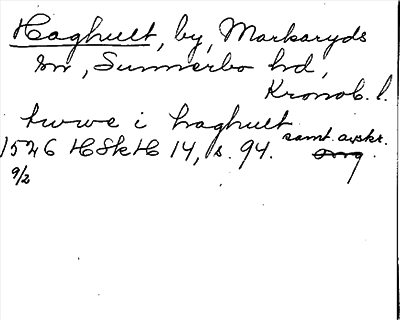 Haghult, by, Markaryds
sn, Sunnerbo hd,
Kronob. l.
twwe i haghult
samt. avskr.
1546 HSkH 14, s. 94. orig.
9/2